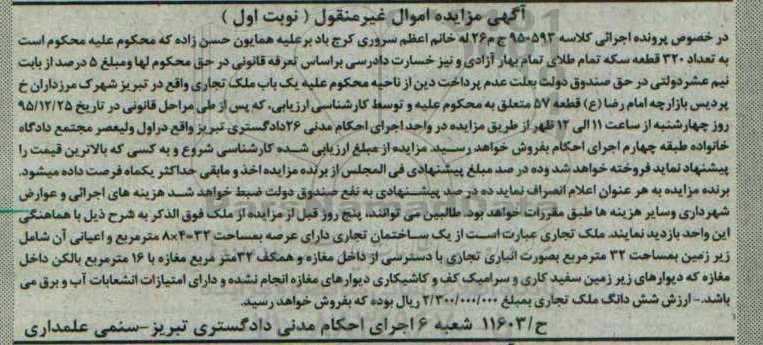 آگهی مزایده اموال غیرمنقول ( نوبت اول )
در خصوص پرونده اجرائی کلاسه ۹۵۰۵۹۳ ج م۲۶ له خانم اعظم سروری کرج باد برعلیه همایون حسن زاده که محکوم علیه محکوم است
به تعداد ۳۲۰ قطعه سکه تمام طلای تمام بهار آزادی و نیز خسارت دادرسی براساس تعرفه قانونی در حق محکوم لها ومبلغ ۵ درصد از بابت
نیم عشر دولتی در حق صندوق دولت بعلت عدم پرداخت دین از ناحیه محکوم علیه یک باب ملک تجاری واقع در تبریز شهرک مرزداران خ
پردیس بازارچه امام رضا (ع) قطعه ۵۷ متعلق به محکوم علیه و توسط کارشناسی ارزیابی، که پس از طی مراحل قانونی در تاریخ ۹۵/۱۲/۲۵
روز چهارشنبه از ساعت ۱۱ الی ۱۲ ظهر از طریق مزایده در واحد اجرای احکام مدنی ۲۶دادگستری تبریز واقع دراول ولیعصر مجتمع دادگاه
خانواده طبقه چهارم اجرای احکام بفروش خواهد رسید. مزایده از مبلغ ارزیابی شده کارشناسی شروع و به کسی که بالاترین قیمت را
پیشنهاد نماید فروخته خواهد شد وده در صد مبلغ پیشنهادی فی المجلس از برنده مزایده اخذ و مابقی حداکثر یکماه فرصت داده میشود.
برنده مزایده به هر عنوان اعلام انصراف نماید ده در صد پیشنهادی به نفع صندوق دولت ضبط خواهد شد هزینه های اجرائی و عوارض
شهرداری وسایر هزینه ها طبق مقررات خواهد بود. طالبین می توانند، پنج روز قبل از مزایده از ملک فوق الذکر به شرح ذیل با هماهنگی
این واحد بازدید نمایند. ملک تجاری عبارت است از یک ساختمان تجاری دارای عرصه بمساحت ۳۲=۴×۸ مترمربع و اعیانی آن شامل
زیر زمین بمساحت ۳۲ مترمربع بصورت انباری تجاری با دسترسی از داخل مغازه و همکف ۳۲متر مربع مغازه با ۱۶ مترمربع بالکن داخل
مغازه که دیوارهای زیر زمین سفید کاری و سرامیک کف و کاشیکاری دیوارهای مغازه انجام نشده و دارای امتیازات انشعابات آب و برق می
باشد.- ارزش شش دانگ ملک تجاری بمبلغ ۲/۳۰۰/۰۰۰/۰۰۰ ریال بوده که بفروش خواهد رسید.
ح/۱۱۶۰۳ شعبه ۶ اجرای احکام مدنی دادگستری تبریز-سنمی علمداری